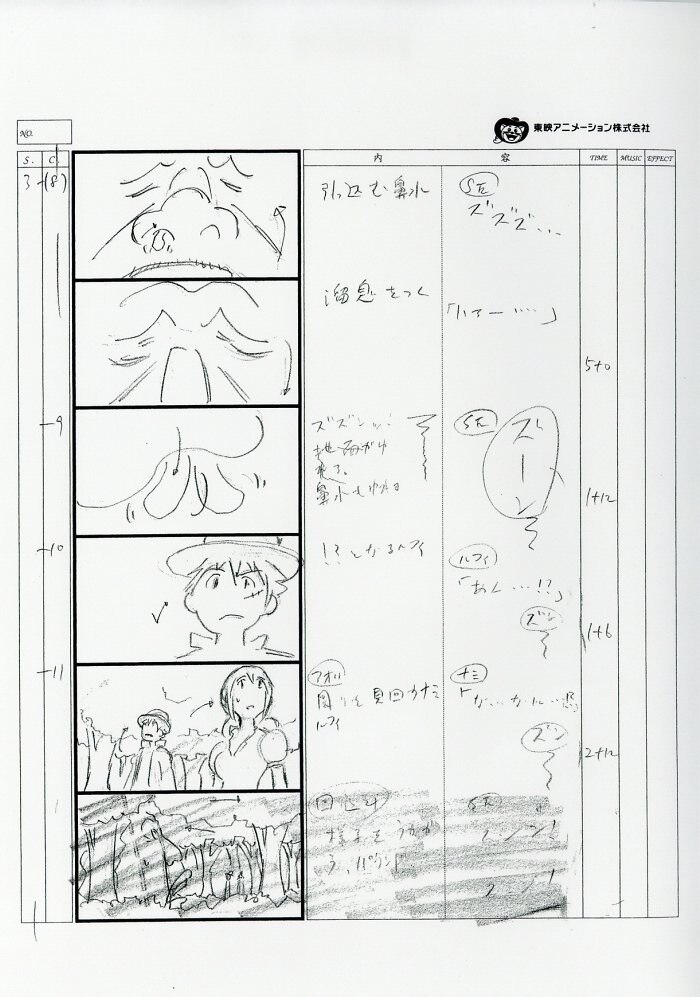 NO.
東映アニメーション株式会社
S. C. 内 容 TIME MUSIC EFFECT
3-(8) 引っ込む鼻水 SE
ズズズ...
溜息をつく
「ハァー……」
5+0
-9 ズズンッ! SE
ズーン
地面がゆ
れる。
鼻水もゆれる
1+12
-10 !?となるルフィ ルフィ
「あん…!?」
ズン
1+6
-11 フォロー ナミ
周りを見回すナミ
ルフィ
「な…なに…!?」
ズン
2+12
回り込み SE
様子をうかが
う、パウンド